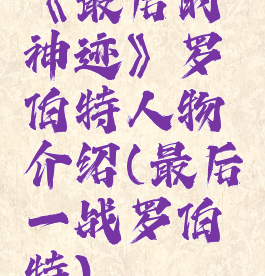 《最后的
神迹》罗
伯特人物
介绍(最后
一战罗伯
特)